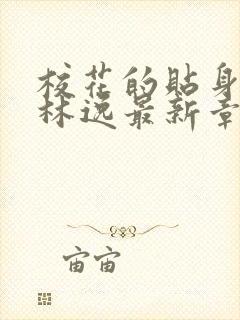 校花的贴身
林逸最新章
宙宙